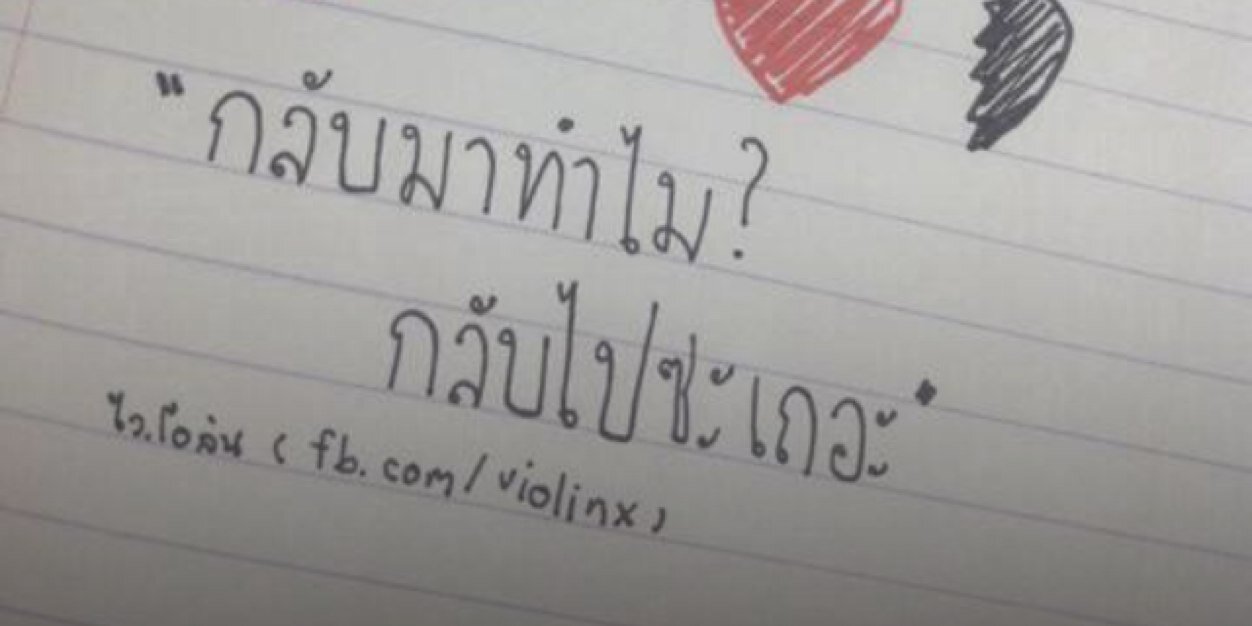 "กลับมาทำไม?
กลับไปซะเถอะ"
ไว.โอลิน (fb.com/violinx)